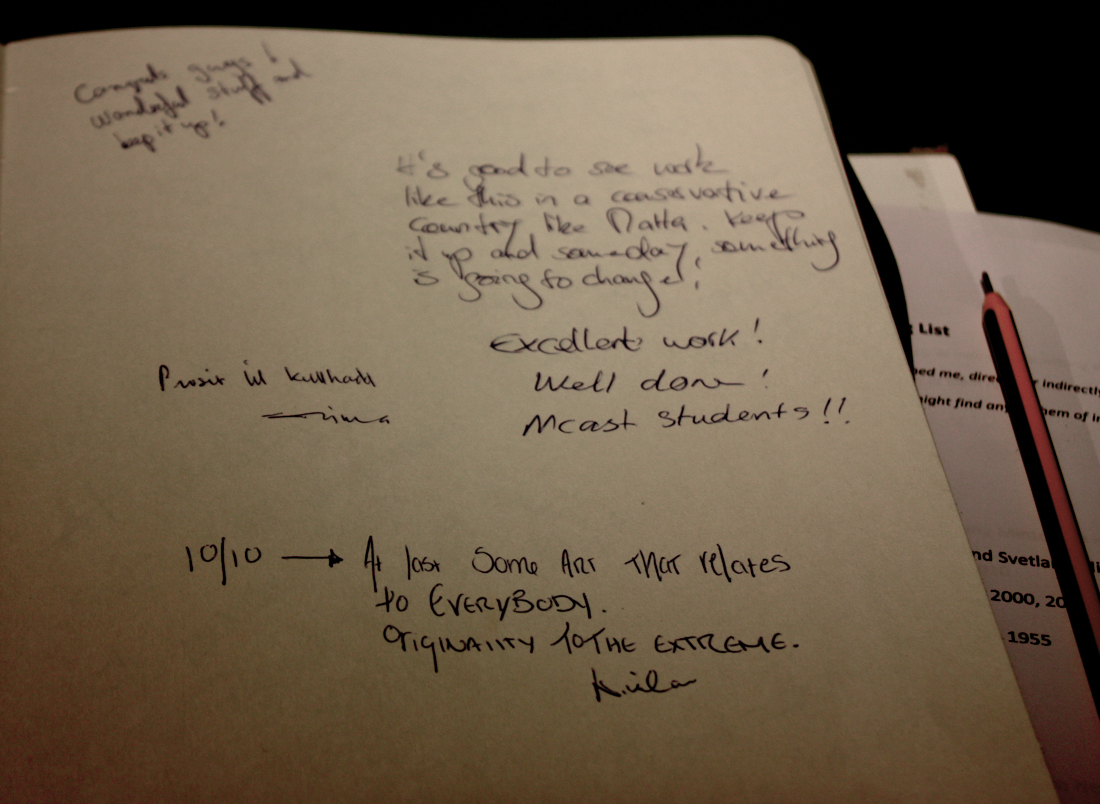 Congrats guys!
Wonderful stuff and
keep it up!
It's good to see work
like this in a conservative
country like Malta. Keep
it up and someday, something
is going to change!
Excellent work!
Well done!
Mcast students!!
Prosit lil kulhadd
10/10 → At last Some Art that relates
to EVERYBODY.
ORIGINALITY TO THE EXTREME.
List
ed me, direc indirectly
ight find an em of
nd Svetla
2000, 20
1955